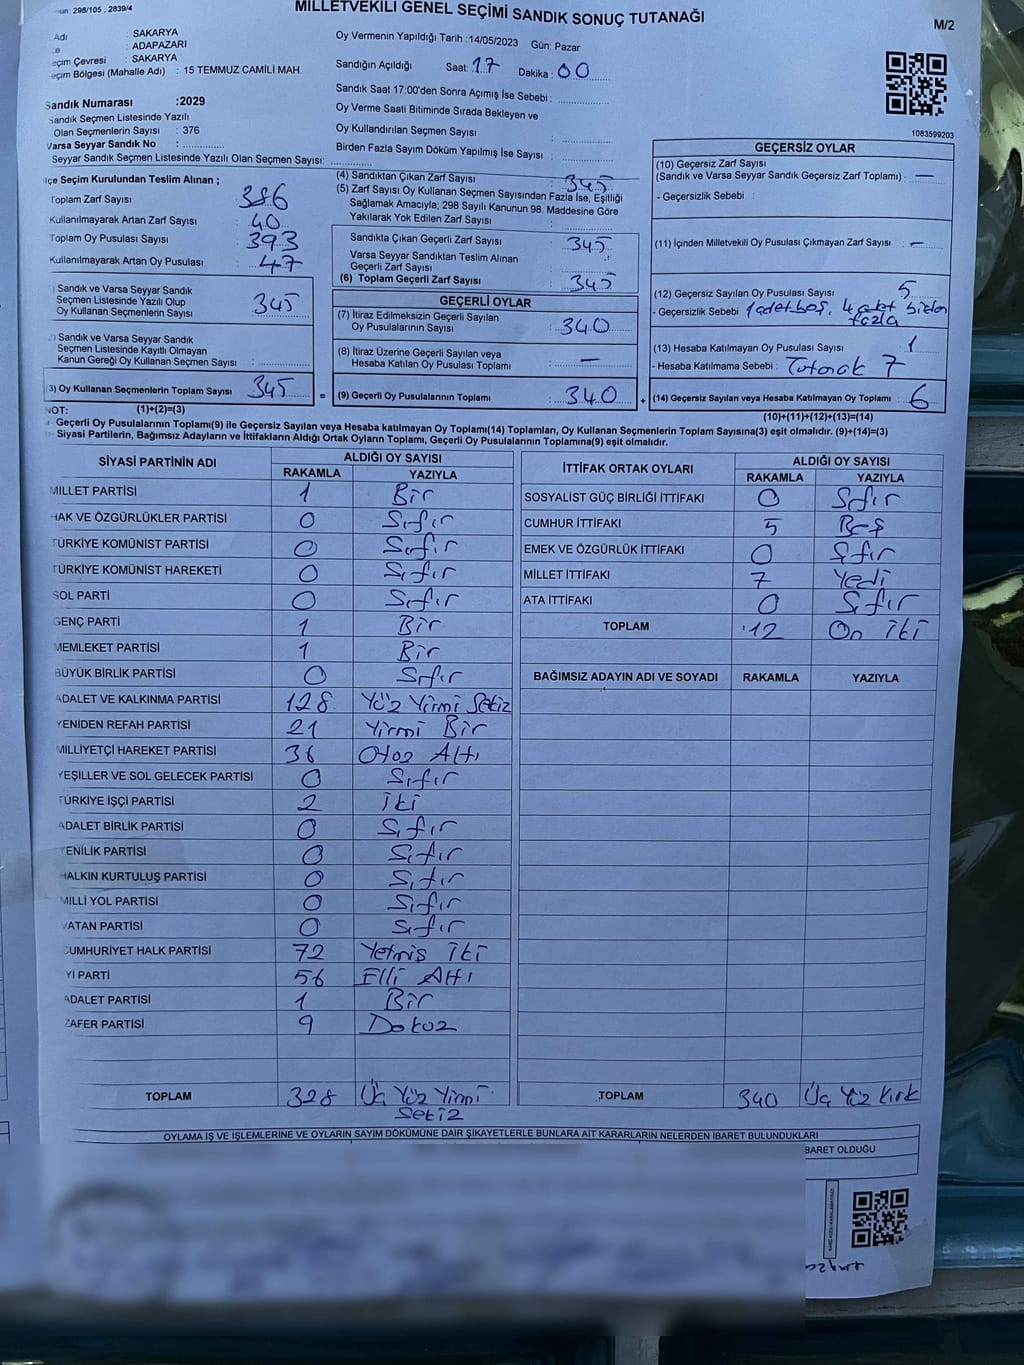 MİLLETVEKİLİ GENEL SEÇİMİ SANDIK SONUÇ TUTANAĞI
298/105 , 2839/4
M/2
Adı : SAKARYA
: ADAPAZARI
eçim Çevresi : SAKARYA
eçim Bölgesi (Mahalle Adı) : 15 TEMMUZ CAMİLİ MAH.
Sandık Numarası :2029
Sandık Seçmen Listesinde Yazılı
Olan Seçmenlerin Sayısı : 376
Varsa Seyyar Sandık No :
Seyyar Sandık Seçmen Listesinde Yazılı Olan Seçmen Sayısı:
Oy Vermenin Yapıldığı Tarih :14/05/2023 Gün: Pazar
Sandığın Açıldığı Saat: 17 Dakika : 00
Sandık Saat 17:00'den Sonra Açımış İse Sebebi :
Oy Verme Saati Bitiminde Sırada Bekleyen ve
Oy Kullandırılan Seçmen Sayısı :
Birden Fazla Sayım Döküm Yapılmış İse Sayısı :
1083599203
lçe Seçim Kurulundan Teslim Alınan ;
Toplam Zarf Sayısı : 386
Kullanılmayarak Artan Zarf Sayısı : 40
Toplam Oy Pusulası Sayısı : 393
Kullanılmayarak Artan Oy Pusulası : 47
) Sandık ve Varsa Seyyar Sandık
Seçmen Listesinde Yazılı Olup
Oy Kullanan Seçmenlerin Sayısı : 345
) Sandık ve Varsa Seyyar Sandık
Seçmen Listesinde Kayıtlı Olmayan
Kanun Gereği Oy Kullanan Seçmen Sayısı :
3) Oy Kullanan Seçmenlerin Toplam Sayısı : 345
(1)+(2)=(3)
(4) Sandıktan Çıkan Zarf Sayısı : 345
(5) Zarf Sayısı Oy Kullanan Seçmen Sayısından Fazla İse, Eşitliği
Sağlamak Amacıyla; 298 Sayılı Kanunun 98. Maddesine Göre
Yakılarak Yok Edilen Zarf Sayısı :
Sandıkta Çıkan Geçerli Zarf Sayısı : 345
Varsa Seyyar Sandıktan Teslim Alınan
Geçerli Zarf Sayısı :
(6) Toplam Geçerli Zarf Sayısı : 345
GEÇERLİ OYLAR
(7) İtiraz Edilmeksizin Geçerli Sayılan
Oy Pusulalarının Sayısı : 340
(8) İtiraz Üzerine Geçerli Sayılan veya
Hesaba Katılan Oy Pusulası Toplamı : —
= (9) Geçerli Oy Pusulalarının Toplamı : 340 +
GEÇERSİZ OYLAR
(10) Geçersiz Zarf Sayısı
(Sandık ve Varsa Seyyar Sandık Geçersiz Zarf Toplamı) : —
- Geçersizlik Sebebi :
(11) İçinden Milletvekili Oy Pusulası Çıkmayan Zarf Sayısı : —
(12) Geçersiz Sayılan Oy Pusulası Sayısı : 5
- Geçersizlik Sebebi : 1 adet boş, 4 adet birden
fazla
(13) Hesaba Katılmayan Oy Pusulası Sayısı : 1
- Hesaba Katılmama Sebebi : Tutanak 7
(14) Geçersiz Sayılan veya Hesaba Katılmayan Oy Toplamı : 6
(10)+(11)+(12)+(13)=(14)
NOT:
- Geçerli Oy Pusulalarının Toplamı(9) ile Geçersiz Sayılan veya Hesaba katılmayan Oy Toplamı(14) Toplamları, Oy Kullanan Seçmenlerin Toplam Sayısına(3) eşit olmalıdır. (9)+(14)=(3)
- Siyasi Partilerin, Bağımsız Adayların ve İttifakların Aldığı Ortak Oyların Toplamı, Geçerli Oy Pusulalarının Toplamına(9) eşit olmalıdır.
SİYASİ PARTİNİN ADI ALDIĞI OY SAYISI
RAKAMLA YAZIYLA
MİLLET PARTİSİ 1 Bir
HAK VE ÖZGÜRLÜKLER PARTİSİ 0 Sıfır
TÜRKİYE KOMÜNİST PARTİSİ 0 Sıfır
TÜRKİYE KOMÜNİST HAREKETİ 0 Sıfır
SOL PARTİ 0 Sıfır
GENÇ PARTİ 1 Bir
MEMLEKET PARTİSİ 1 Bir
BÜYÜK BİRLİK PARTİSİ 0 Sıfır
ADALET VE KALKINMA PARTİSİ 128 Yüz Yirmi Sekiz
YENİDEN REFAH PARTİSİ 21 Yirmi Bir
MİLLİYETÇİ HAREKET PARTİSİ 36 Otuz Altı
YEŞİLLER VE SOL GELECEK PARTİSİ 0 Sıfır
TÜRKİYE İŞÇİ PARTİSİ 2 İki
ADALET BİRLİK PARTİSİ 0 Sıfır
YENİLİK PARTİSİ 0 Sıfır
HALKIN KURTULUŞ PARTİSİ 0 Sıfır
MİLLİ YOL PARTİSİ 0 Sıfır
VATAN PARTİSİ 0 Sıfır
CUMHURİYET HALK PARTİSİ 72 Yetmiş İki
İYİ PARTİ 56 Elli Altı
ADALET PARTİSİ 1 Bir
ZAFER PARTİSİ 9 Dokuz
TOPLAM 328 Üç Yüz Yirmi
Sekiz
İTTİFAK ORTAK OYLARI ALDIĞI OY SAYISI
RAKAMLA YAZIYLA
SOSYALİST GÜÇ BİRLİĞİ İTTİFAKI 0 Sıfır
CUMHUR İTTİFAKI 5 Beş
EMEK VE ÖZGÜRLÜK İTTİFAKI 0 Sıfır
MİLLET İTTİFAKI 7 Yedi
ATA İTTİFAKI 0 Sıfır
TOPLAM 12 On İki
BAĞIMSIZ ADAYIN ADI VE SOYADI RAKAMLA YAZIYLA
TOPLAM 340 Üç Yüz Kırk
OYLAMA İŞ VE İŞLEMLERİNE VE OYLARIN SAYIM DÖKÜMÜNE DAİR ŞİKAYETLERLE BUNLARA AİT KARARLARIN NELERDEN İBARET BULUNDUKLARI
BARET OLDUĞU